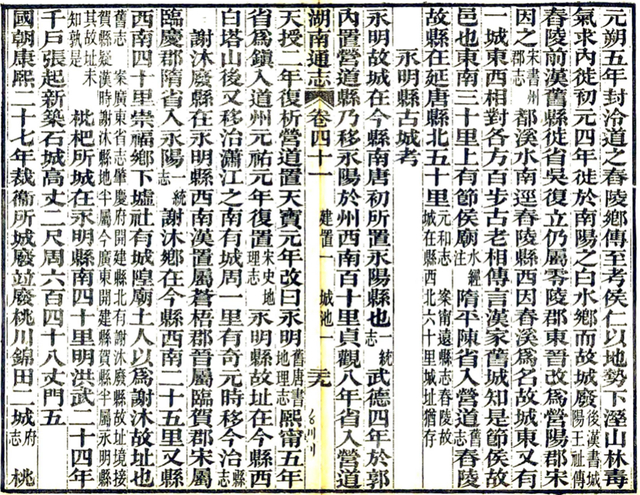 元朔五年封泠道之舂陵鄉傳至考侯仁以地勢下溼山林毒
氣求內徙初元四年徙於南陽之白水鄉而故城廢後漢書城陽王祉傳
舂陵前漢舊縣徙省吳復立仍屬零陵郡東晉改爲營陽郡宋
因之宋書州郡志都溪水南逕舂陵縣西因舂溪爲名故城東又有
一城東西相對各方百步古老相傳言漢家舊城知是節侯故
邑也東南三十里上有節侯廟水經注隋平陳省入營道舊志舂陵
故縣在延唐縣北五十里元和志 案甯遠縣志舂陵故城在縣西北六十里城址猶存
永明縣古城考
永明故城在今縣南唐初所置永陽縣也一統志武德四年於郭
內置營道縣乃移永陽於州西南百十里貞觀八年省入營道
湖南通志 卷四十一 建置一 城池一
天授二年復析營道置天寶元年改曰永明舊唐書地理志熙甯五年
省爲鎮入道州元祐元年復置宋史地理志永明縣故址在今縣西
白塔山後又移治瀟江之南有城周一里有奇元時移今治縣志
謝沐廢縣在永明縣西南漢置屬蒼梧郡晉屬臨賀郡宋屬
臨慶郡隋省入永陽一統志謝沐鄉在今縣西南二十五里又縣
西南四十里崇福鄉下墟社有城隍廟土人以爲謝沐故址也
舊志 案廣東省志肇慶府開建縣北有謝沐廢縣故址境接賀縣疑漢時謝沐縣地半屬今廣東開建縣賀縣半屬永明縣
其故址未知孰是 枇杷所城在永明縣南四十里明洪武二十四年
千戶張起新築石城高丈二尺周六百四十八丈門五
國朝康熙二十七年裁衞所城廢竝廢桃川錦田二城府志 桃